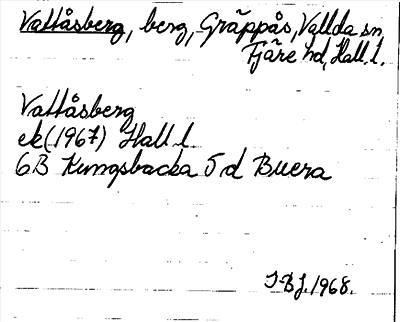 Vattåsberg, berg, Gräppås, Vallda sn,
Fjäre hd, Hall. l.
Vattåsberg
ek (1967) Hall l
6B Kungsbacka 5 d Buera
I-BJ. 1968.